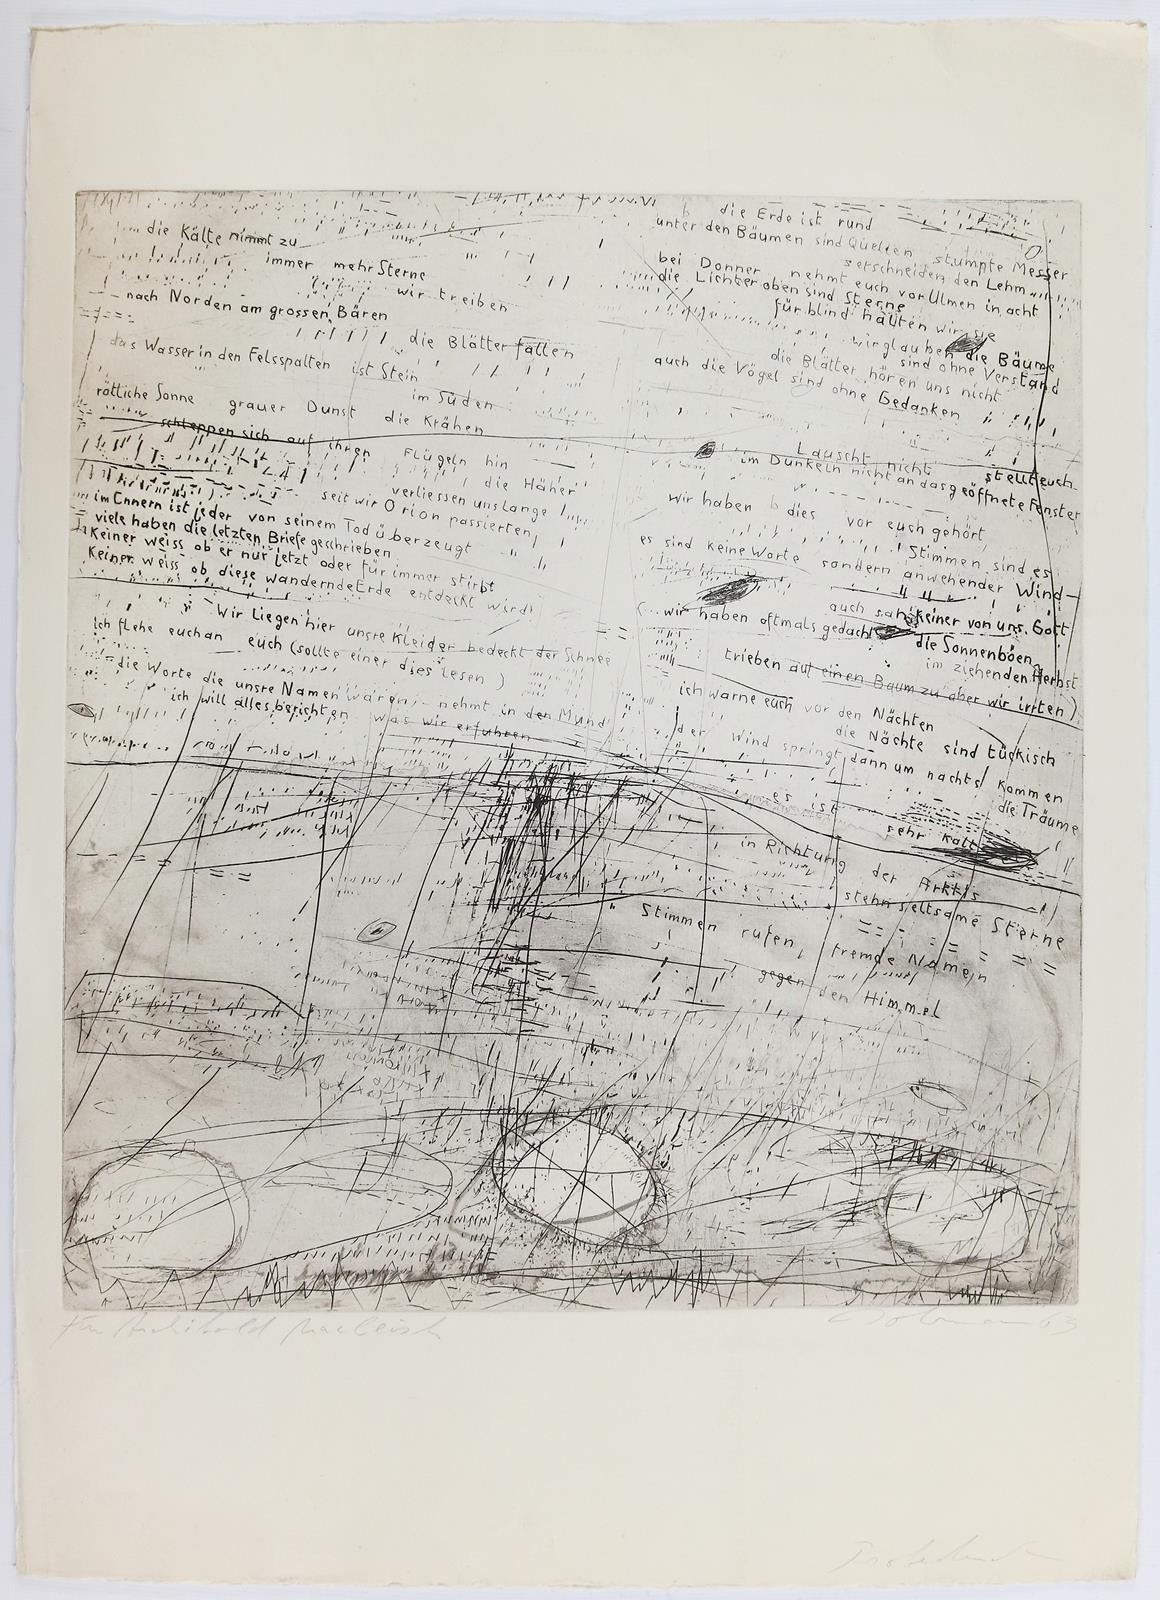 die Kälte nimmt zu
immer mehr Sterne
wir treiben
nach Norden am grossen Bären
die Blätter fallen
das Wasser in den Felsspalten ist Stein
im Süden
rötliche Sonne grauer Dunst die Krähen
schleppen sich auf ihren Flügeln hin
die Häher
verliessen uns lange
seit wir Orion passierten
im Innern ist jeder von seinem Tod überzeugt
viele haben die letzten Briefe geschrieben
Keiner weiss ob er nur jetzt oder für immer stirbt
Keiner weiss ob diese wandernde Erde entdeckt wird
Wir Liegen hier unsre Kleider bedeckt der Schnee
ich flehe euch an euch (sollte einer dies lesen)
die Worte die unsre Namen wären, nehmt in den Mund
ich will alles berichten was wir erfuhren
die Erde ist rund
unter den Bäumen sind Quellen stumpfe Messer
zerschneiden den Lehm
bei Donner nehmt euch vor Ulmen in acht
die Lichter oben sind Sterne
für blind hallten wir sie
wir glauben die Bäume
sind ohne Verstand
die Blätter hören uns nicht
auch die Vögel sind ohne Gedanken
Lauscht nicht
stellt euch
im Dunkeln nicht an das geöffnete Fenster
wir haben dies vor euch gehört
Stimmen sind es
es sind keine Worte sondern anwehender Wind
auch sah keiner von uns Gott
(wir haben oftmals gedacht
die Sonnenböen
im ziehenden Herbst
trieben auf einen Baum zu aber wir irrten)
ich warne euch vor den Nächten
die Nächte sind tückisch
der Wind springt dann um nachts kommen
die Träume
es ist
sehr kalt
in Richtung der Arktis
stehn seltsame Sterne
Stimmen rufen
fremde Namen
gegen den Himmel
Für Archibald MacLeish
63
Probedruck